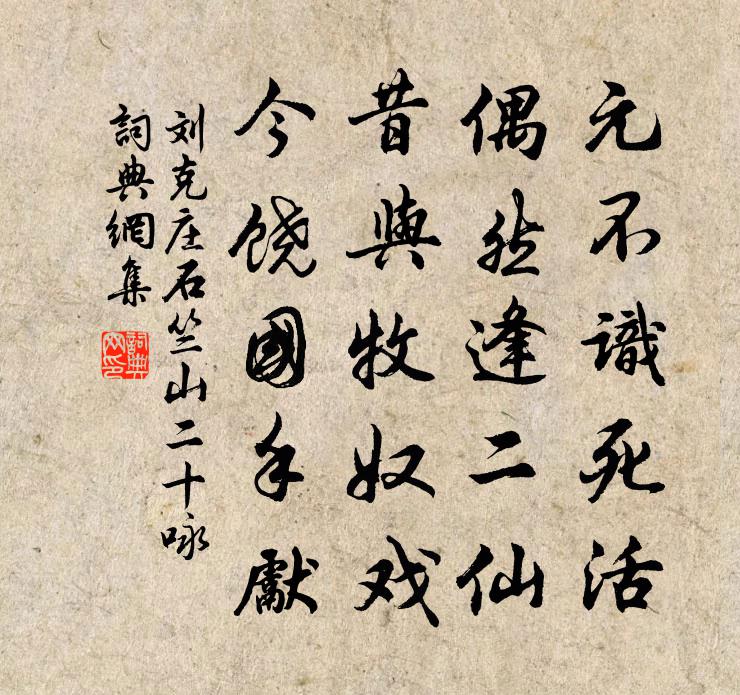 元不識死活
偶然逢二仙
昔與牧奴戏
今饶國手獻
刘克庄石竺山二十咏
詞典網集
詞典
网印